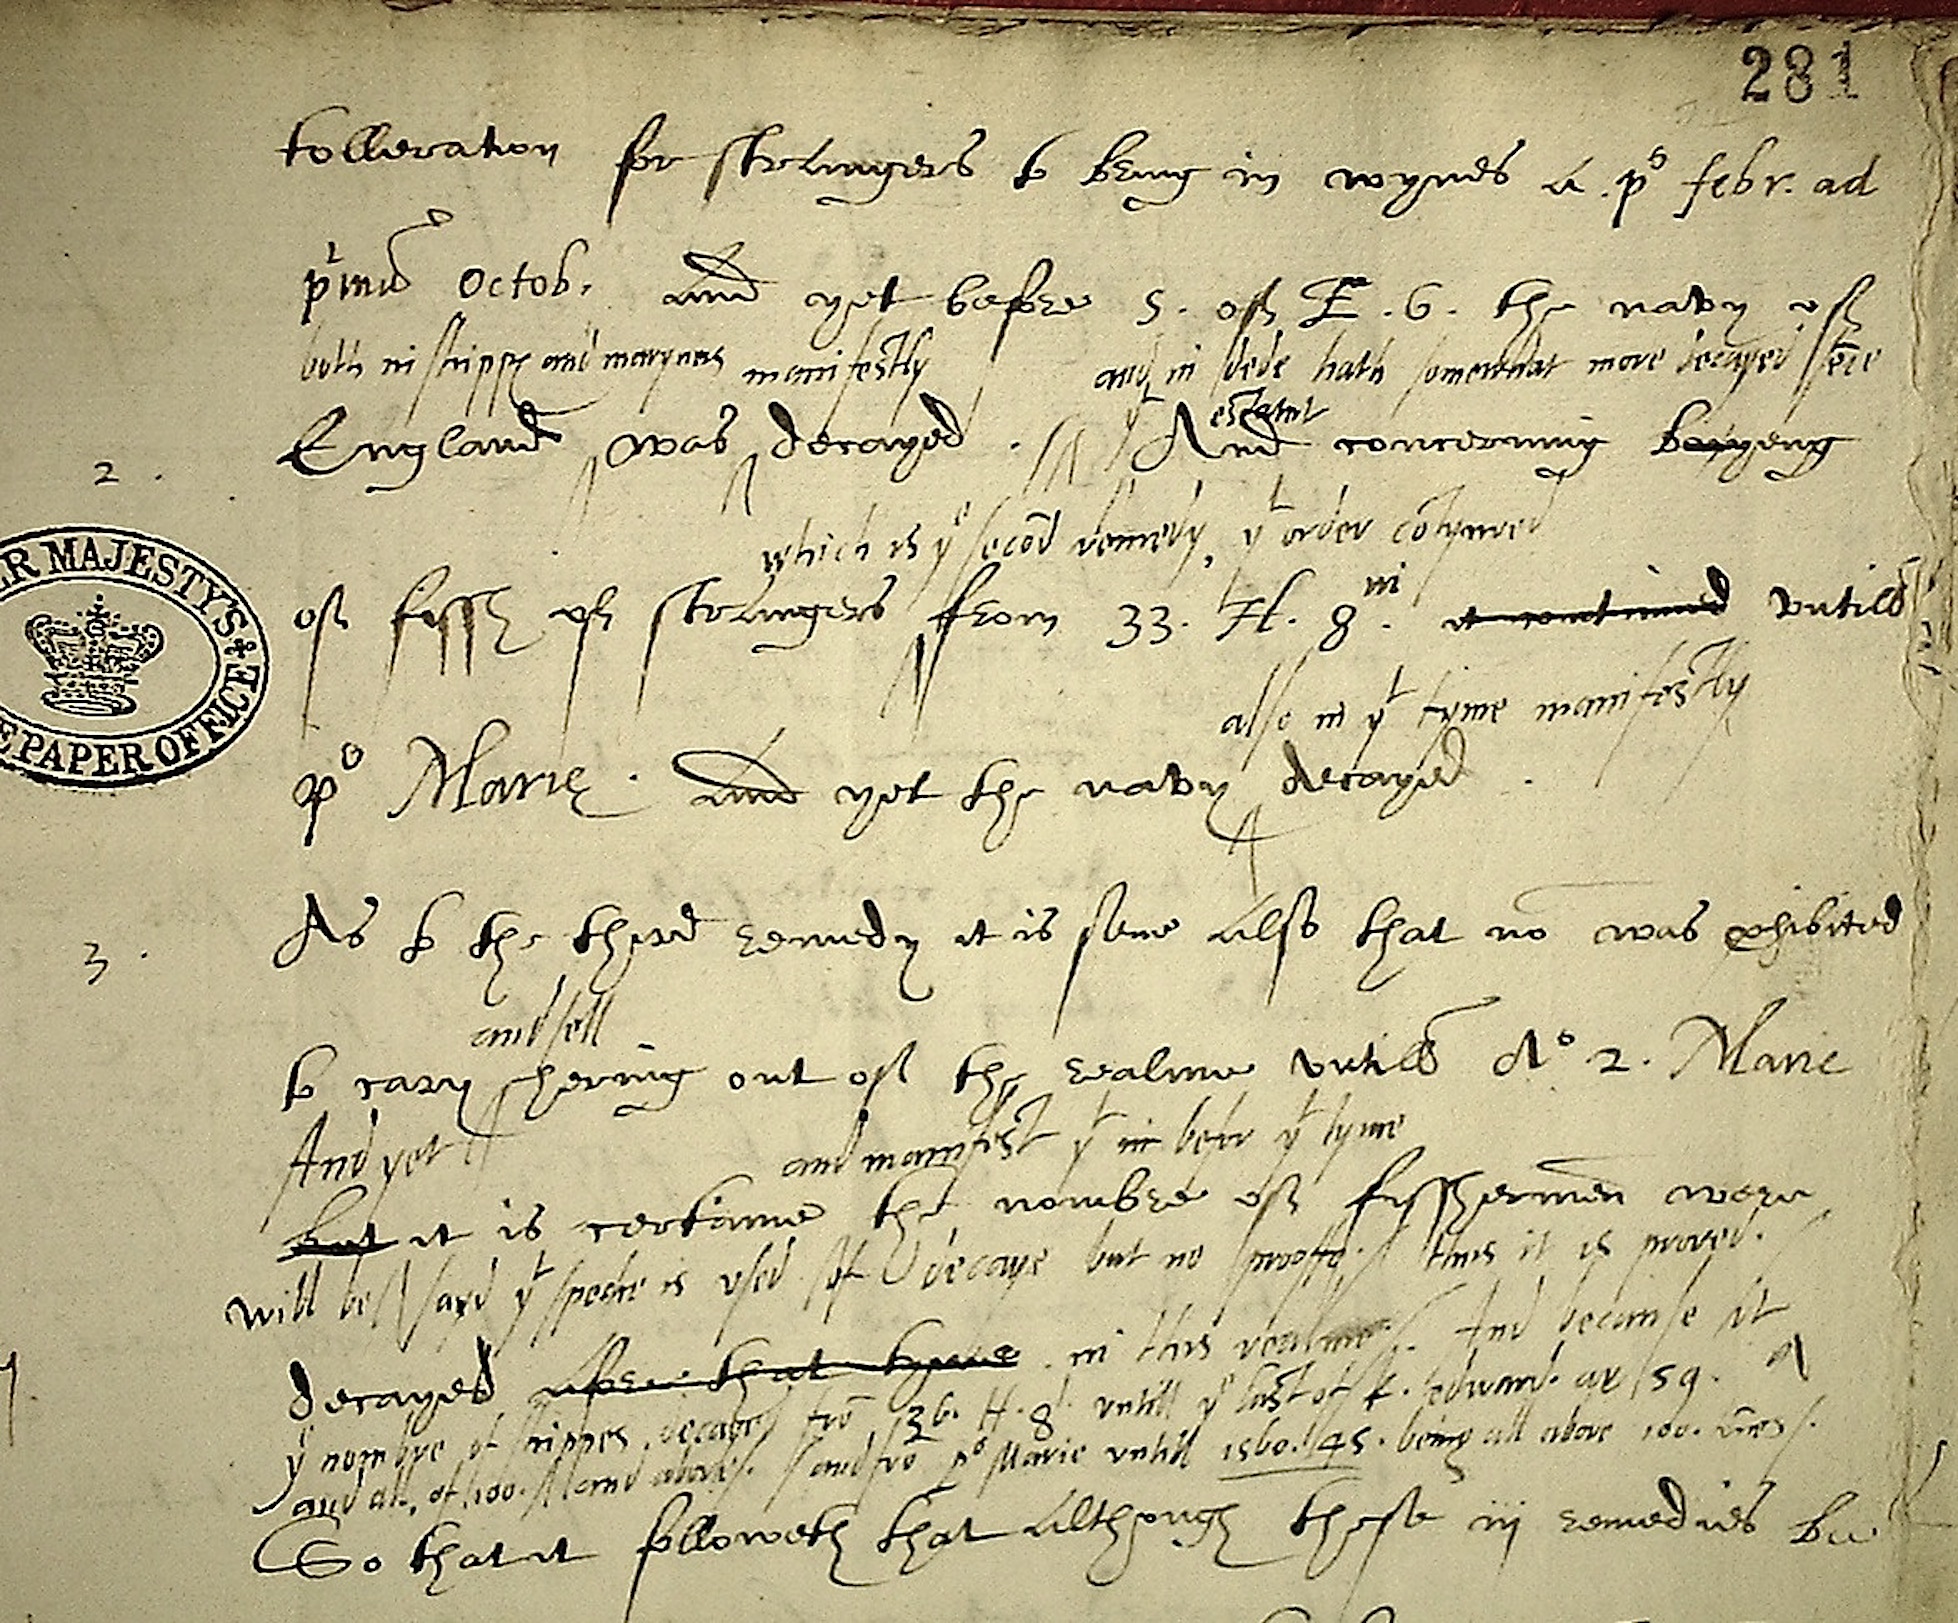 281
tolleration for strangers to bring in wynes a p° febr. ad
primũ Octob. And yet before 5. off E. 6. the navy off
both in shippes and maryners manifestly and in dede hath somewhat more decayed
England was decayed . And concerning byeng
2 .
which is yᵉ secōd remedy, yᵗ order cōtynued
off fyssh off strangers from 33. H. 8. it continued untill
HER MAJESTY'S STATE PAPER OFFICE
also in yᵗ tyme manifestly
p° Marie . And yet the navy decayed .
3 . As to the third remedy it is sene also that nō was prohibited
and sell
to cary hering out off the realme untill A° 2. Marie
And yet and manifest yᵗ in befor yᵗ tyme
but it is certaine the nombre off fysshermen were
will be sayd yᵗ speche is used of decaye but no prooffe. thus it is proved.
decayed afore that tyme in this realme. And because it
yᵉ nombre of shippes decayed frō 36. H. 8. untill yᵉ last of K. Edward. ar 59.
and all of 100. and above. and frō p° Marie untill 1560. 45. being all above 100.
So that it followeth that although these iij remedies be